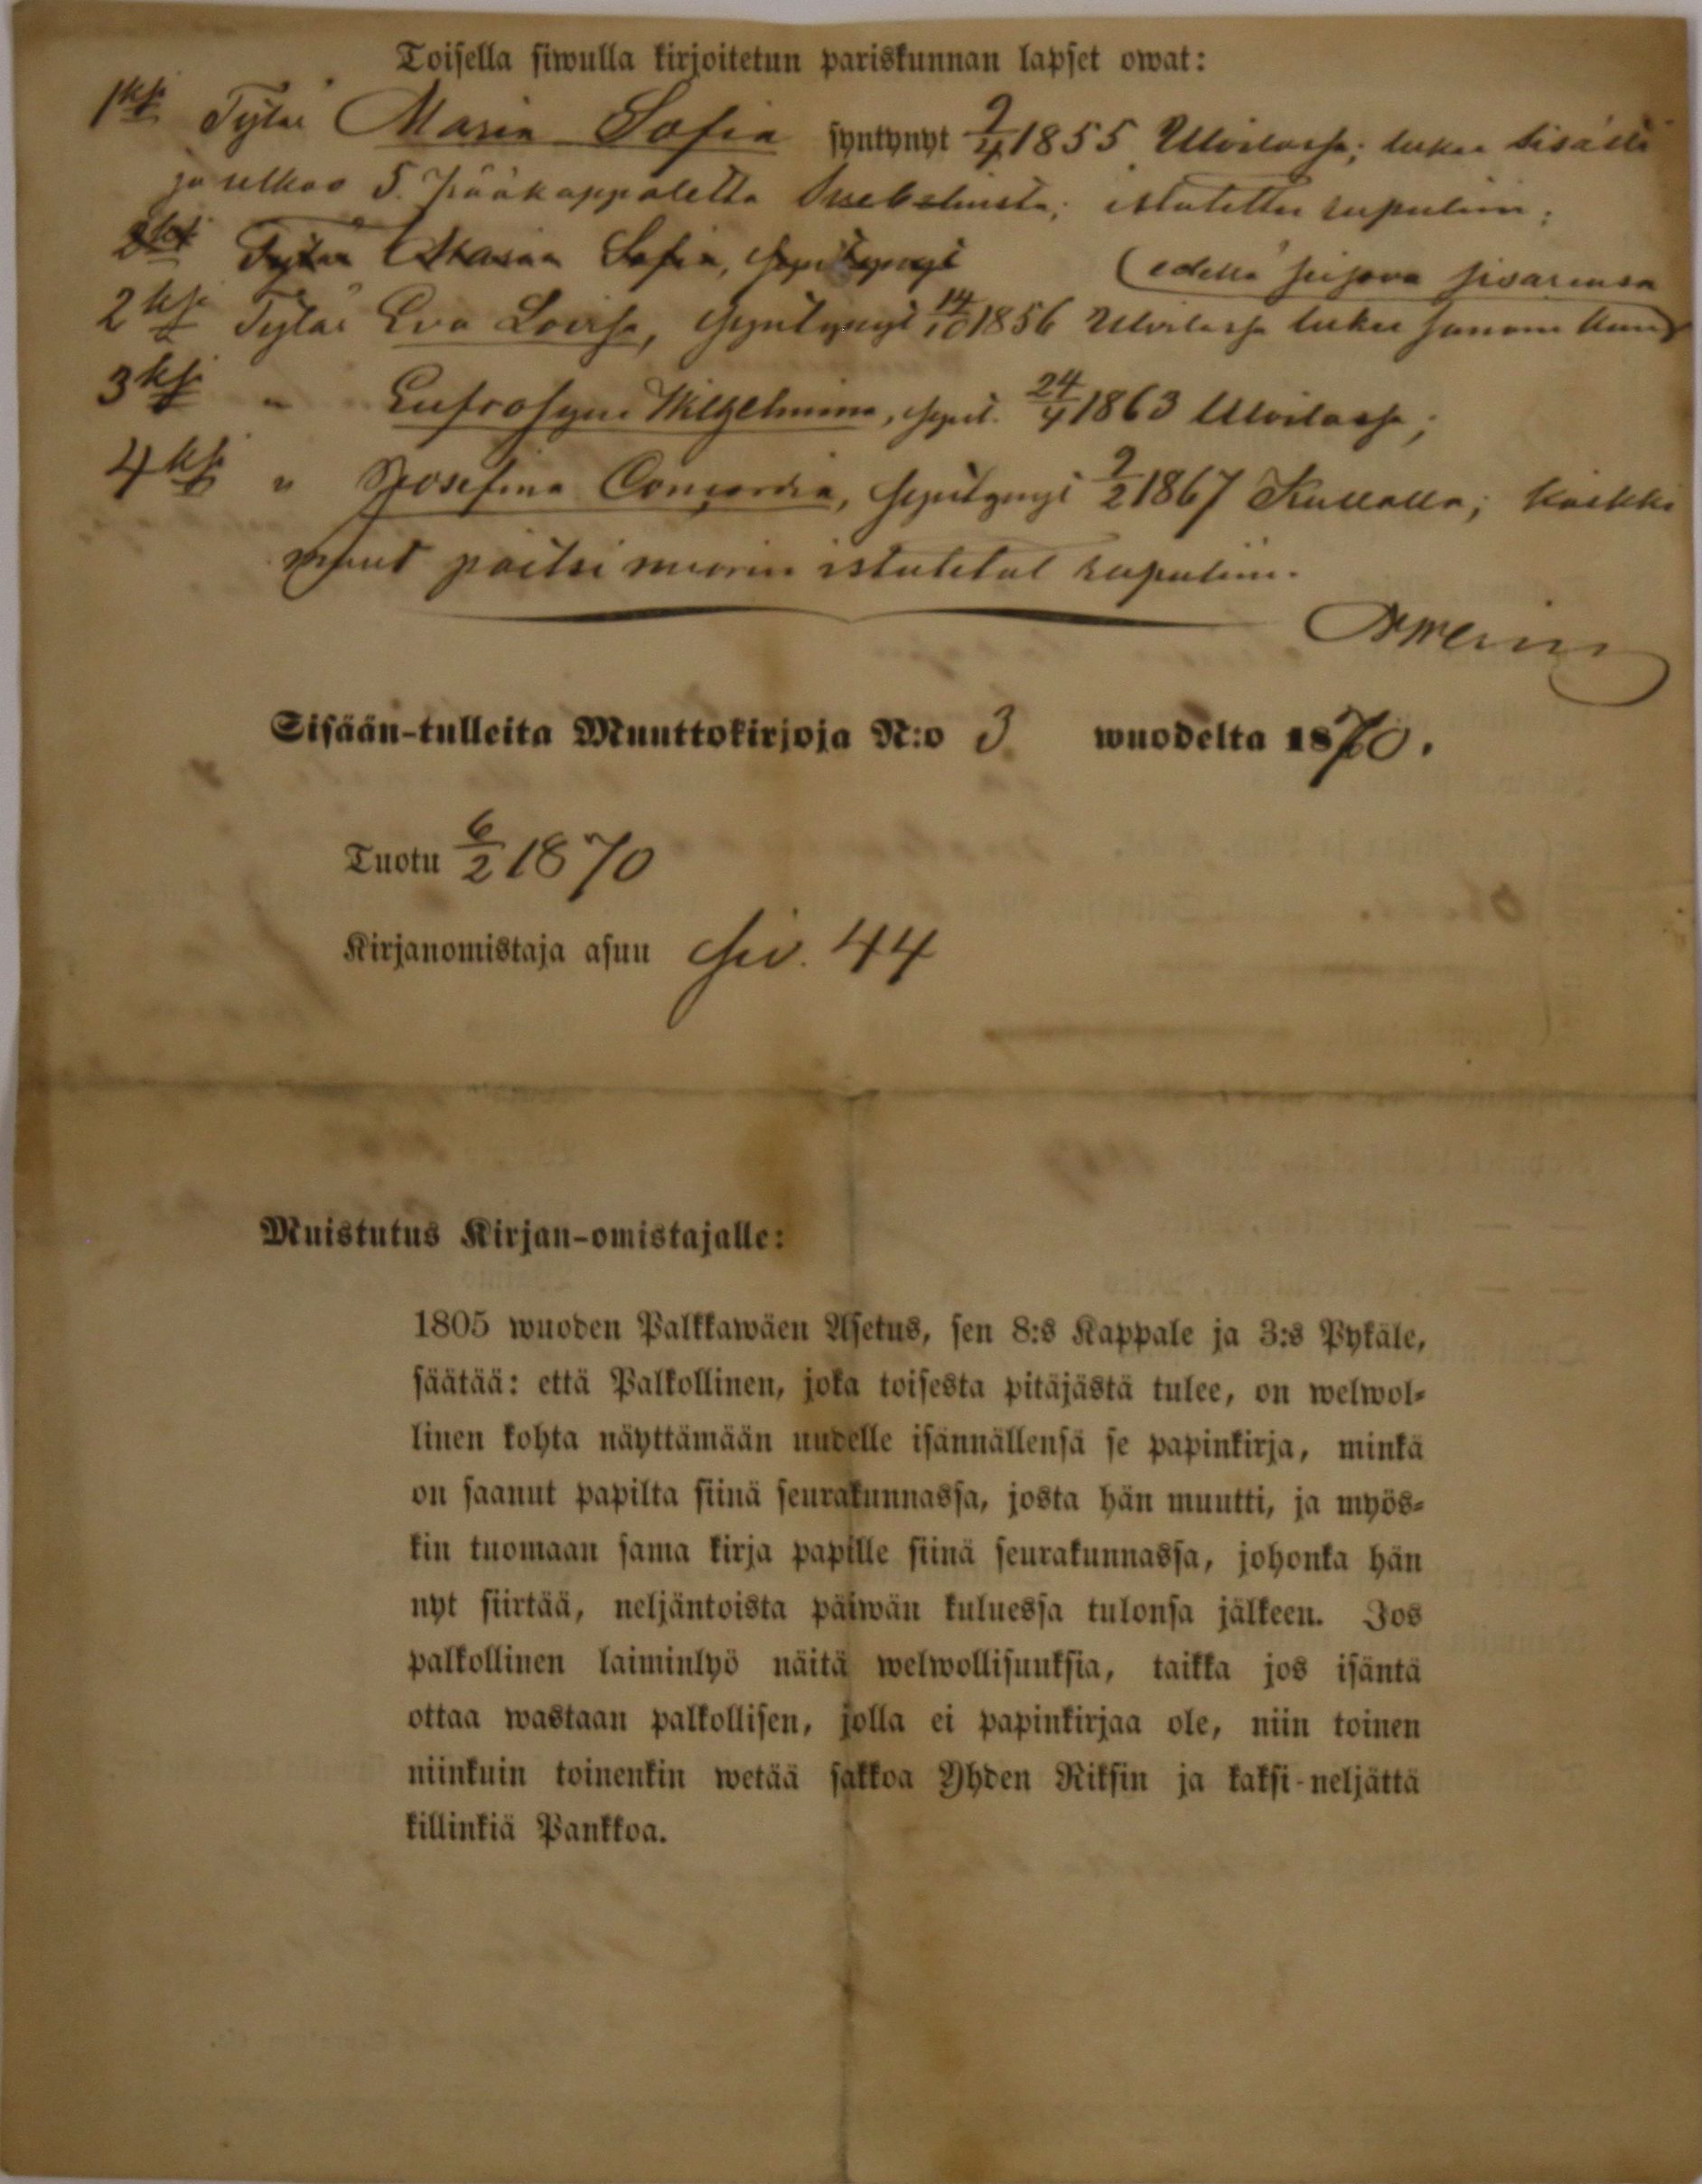 Toisella siwulla kirjoitetun pariskunnan lapset owat:
1ksi Tytär Maria Sofia syntynyt 9/4 1855 Ulvilassa; lukee sisältä
ja selkoo 5. pääkappaletta ; istutettu rupuliin;
Tytär Maria Sofia, syntynyt (edellä seisova sisarensa
2ksi Tytär Eva Lovisa, syntynyt 14/10 1856 Ulvilassa lukee samoin kuin
3ksi " Eufrosyne Wilhelmina, synt. 24/4 1863 Ulvilassa;
4ksi " Josefina Concordia, syntynyt 9/2 1867 Kullalla; kaikki
muut paitsi nuorin istutetut rupuliin.
Sisään-tulleita Muuttokirjoja N:o 3 wuodelta 1870.
Tuotu 6/2 1870
Kirjanomistaja asuu siv. 44
Muistutus Kirjan-omistajalle:
1805 wuoden Palkkawäen Asetus, sen 8:s Kappale ja 3:s Pykäle,
säätää: että Palkollinen, joka toisesta pitäjästä tulee, on welwol-
linen kohta näyttämään uudelle isännällensä se papinkirja, minkä
on saanut papilta siinä seurakunnassa, josta hän muutti, ja myös-
kin tuomaan sama kirja papille siinä seurakunnassa, johonka hän
nyt siirtää, neljäntoista päiwän kuluessa tulonsa jälkeen. Jos
palkollinen laiminlyö näitä welwollisuuksia, taikka jos isäntä
ottaa wastaan palkollisen, jolla ei papinkirjaa ole, niin toinen
niinkuin toinenkin wetää sakkoa Yhden Riksin ja kaksi-neljättä
killinkiä Pankkoa.